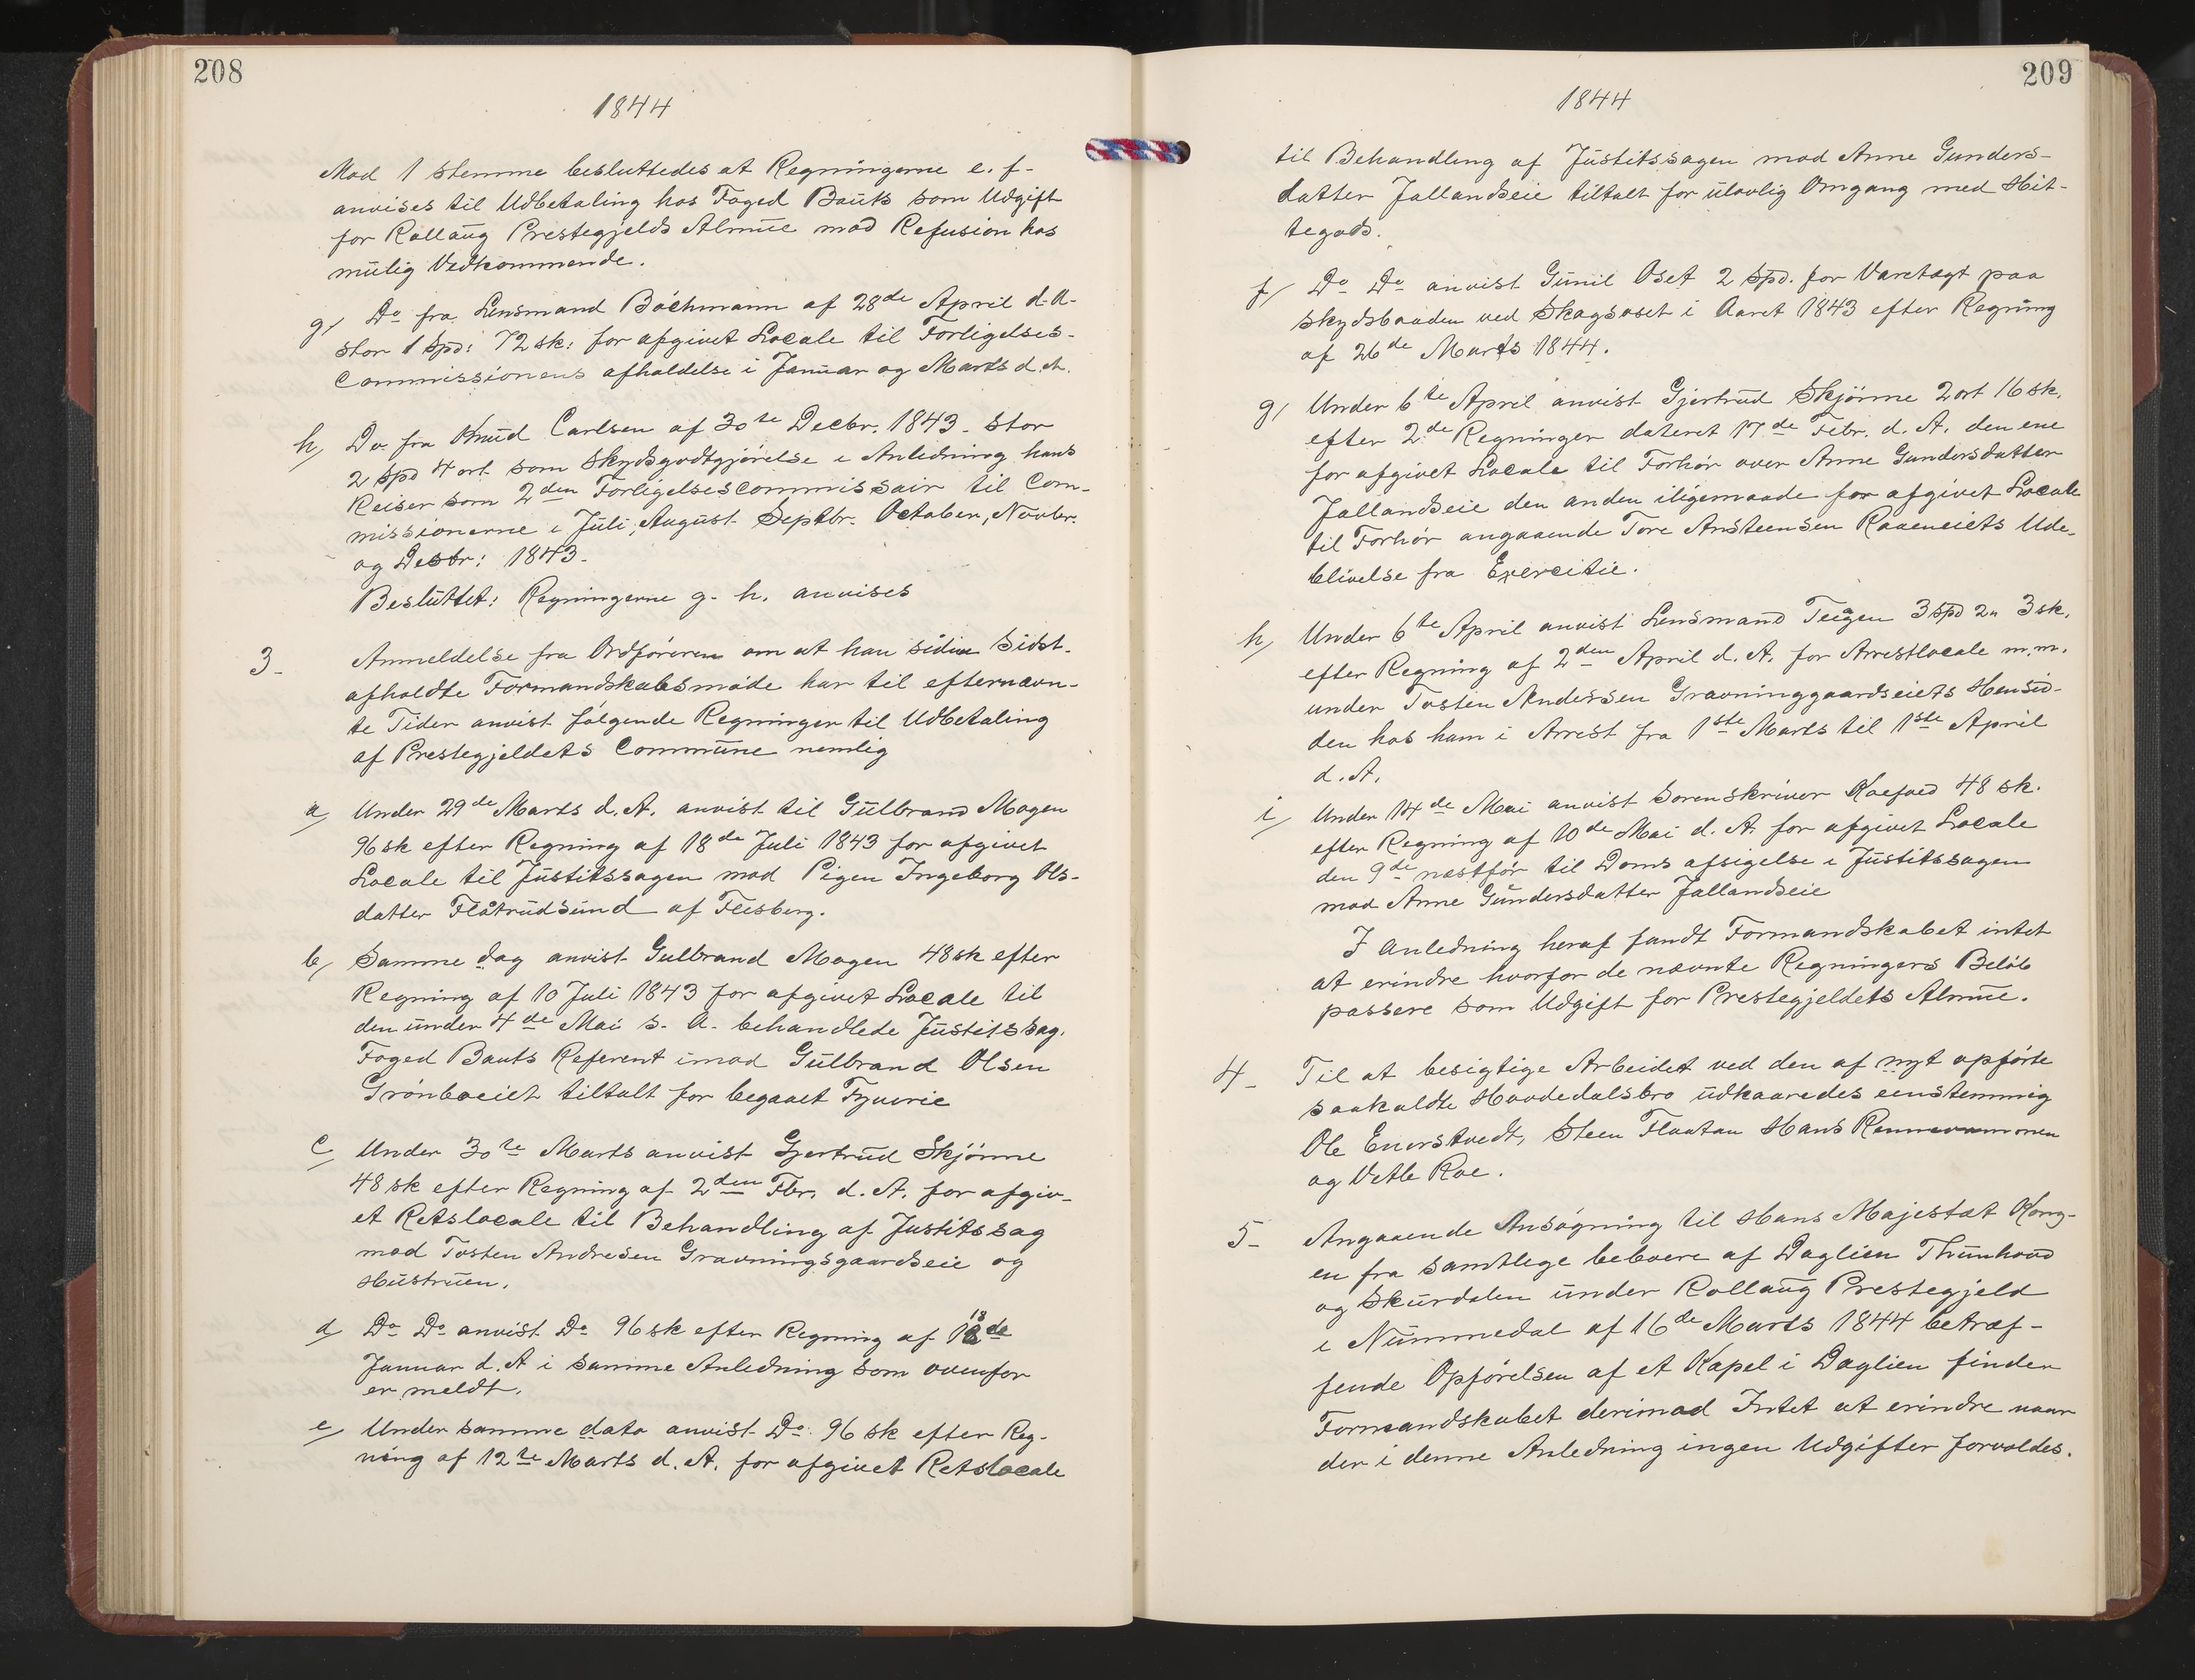 208
1844
Mod 1 Stemme besluttedes at Regningerne e. f-
anvises til Udbetaling hos Foged Bauts som Udgift
for Rollaug Prestegjelds Almue mod Refusion hos
mulig Vedkommende.
g, Do fra Lensmand Bächmann af 28de April d. A-
stor 1 Spd: 72 sk: for afgivet Locale til Forligelses-
Commissionens afholdelse i Januar og Marts d. A.
h, Do. fra Knud Carlsen af 30te Decbr. 1843. stor
2 Spd 4 ort som Skydsgodtgjørelse i Anledning hans
Reiser som 2den Forligelsescommissair til Com-
missionerne i Juli, August Septbr. October, Novbr.
og Desbr: 1843.
Besluttet: Regningerne g. h. anvises
3- Anmeldelse fra Ordføreren om at han siden Sidst-
afholdte Formandskabsmøde har til efternævn-
te Tider anvist følgende Regninger til Udbetaling
af Prestegjeldets Commune nemlig
a, Under 29de Marts d. A. anvist til Gulbrand Mogen
96 sk efter Regning af 18de Juli 1843 for afgivet
Locale til Justitssagen mod Pigen Ingeborg Ols-
datter Flåtrudsund af Flesberg.
b, Samme dag anvist Gulbrand Mogen 48 sk efter
Regning af 10 Juli 1843 for afgivet Locale til
den under 4de Mai s. A. behandlede Justitssag.
Foged Bauts Referent imod Gulbrand Olsen
Grönboeiet tiltalt for begaaet Tyverie
c, Under 30te Marts anvist Gjertrud Skjönne
48 sk efter Regning af 2den Fbr. d. A. for afgiv-
et Retslocale til Behandling af Justitssag
mod Tosten Andresen Gravningsgaardseie og
Hustruen.
d, Do Do anvist Do 96 sk efter Regning af 18de
Januar d. A i samme Anledning som ovenfor
er meldt.
e, Under samme dato anvist Do 96 sk efter Reg-
ning af 12te Marts d. A. for afgivet Retslocale
209
1844
til Behandling af Justitssagen mod Anne Gunders-
datter Jallandseie tiltalt for ulovlig Omgang med Hit-
tegods.
f, Do Do anvist Gunil Oset 2 Spd. for Varetægt paa
Skydsbaaden ved Skagsoset i Aaret 1843 efter Regning
af 26de Marts 1844.
g, Under 6te April anvist Gjertrud Skjönne 2 ort 16 sk.
efter 2de Regninger dateret 17de Febr. d. A. den ene
for afgivet Locale til Forhör over Anne Gundersdatter
Jallandseie den anden iligemaade for afgivet Locale
til Forhör angaaende Tore Ansteensen Raaeneiets Ude-
blivelse fra Exercitie.
h, Under 6te April anvist Lensmand Teigen 3 Spd 2" 3 sk.
efter Regning af 2den April d. A. for Arrestlocale m. m.
under Tosten Andersen Gravninggaardseiets Hensid-
den hos ham i Arrest fra 1ste Marts til 1ste April
d. A.
i, Under 14de Mai anvist Sorenskriver Koefoed 48 sk.
efter Regning af 10de Mai d. A. for afgivet Locale
den 9de næstfør til Doms afsigelse i Justitssagen
mod Anne Gundersdatter Jallandseie
I Anledning heraf fandt Formandskabet intet
at erindre hvorfor de nævnte Regningers Belöb
passere som Udgift for Prestegjeldets Almue.
4- Til at besigtige Arbeidet ved den af nyt opførte
saakaldte Hovdedalsbro udkaaredes eenstemmig
Ole Enerstvedt, Steen Flaatan Hans
og Vetle Roe.
5- Angaaende Ansøgning til Hans Majestæt Kong-
en fra samtlege beboere af Daglien Thunhovd
og Skurdalen under Rollaug Prestegjeld
i Nummedal af 16de Marts 1844 betræf-
fende Opførelsen af et Kapel i Daglien finder
Formandskabet derimod Intet at erindre naar
der i denne Anledning ingen Udgifter forvoldes.